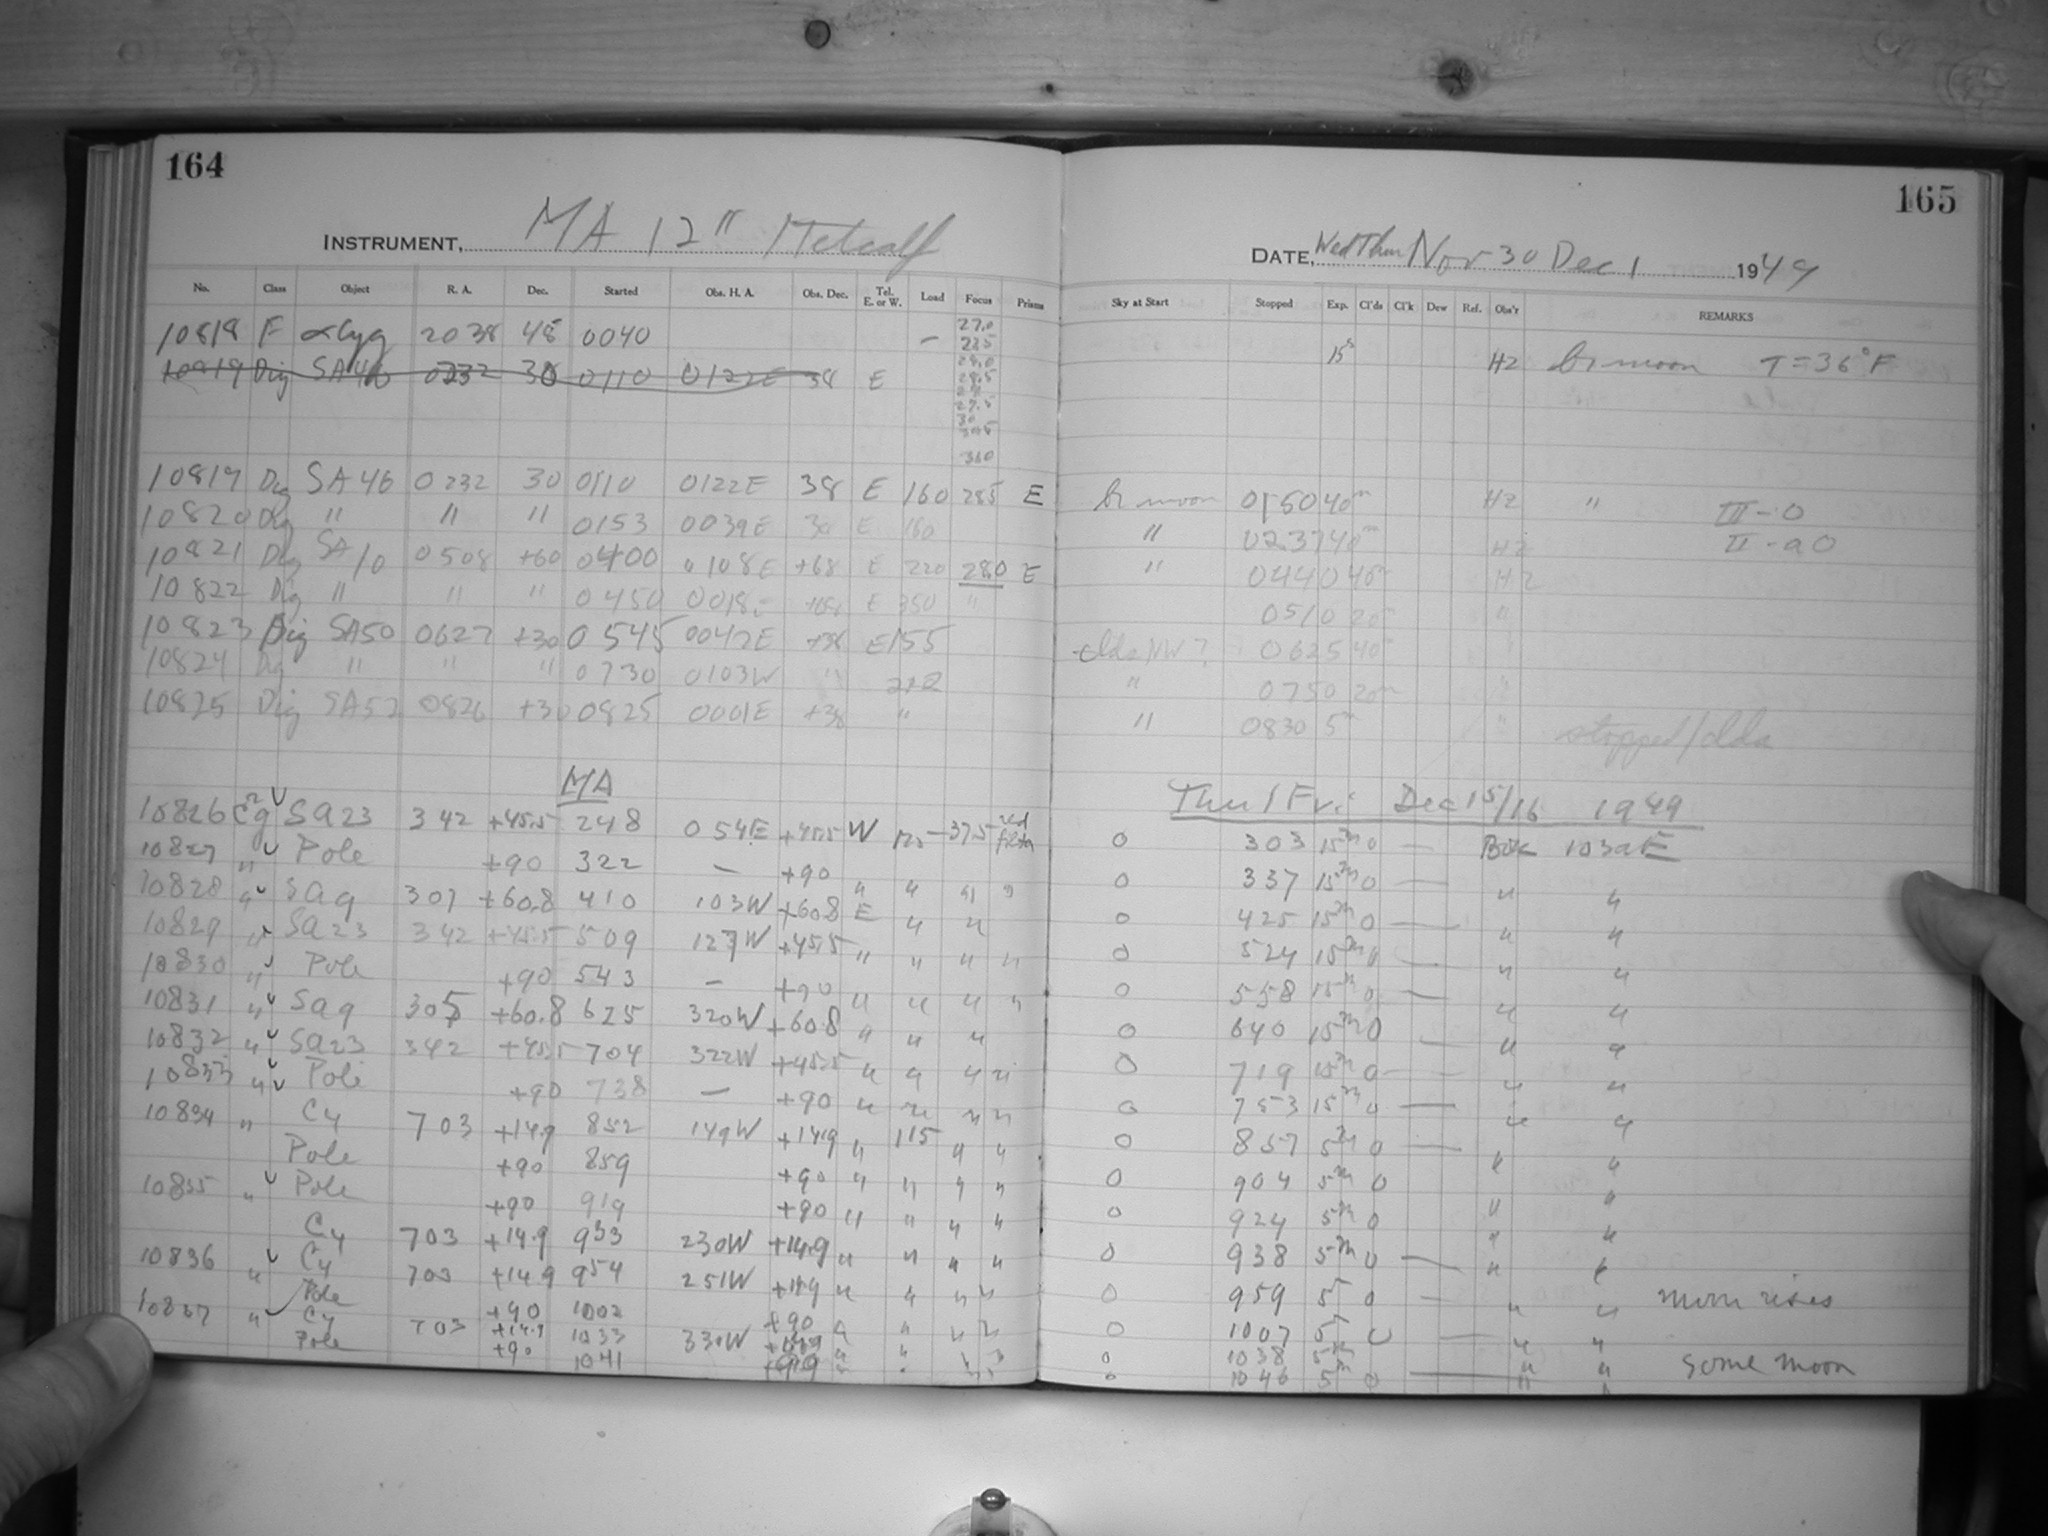 164
165
INSTRUMENT, MA 12" Metcalf
DATE, Wed Thur Nov 30 Dec 1 1949
No. Class Object R. A. Dec. Started Obs. H. A. Obs. Dec. Tel. E. or W. Load Focus Prisms Sky at Start Stopped Exp. Cl'ds Cl'k Dew Ref. Obs'r REMARKS
10818 F α Cyg 2038 45 0040 — 27.0 15s HZ br moon T=36°F
28.0
28.5
10819 Dig SA46 0232 30 0110 0122E 38 E
10819 Dig SA 46 0232 30 0110 0122E 38 E 160 285 E br moon 0150 40m HZ " III-O
10820 Dig " " " 0153 0039E 38 E 160 " 0237 40m HZ II-aO
10821 Dig SA10 0508 +60 0400 0108E +68 E 220 280 E " 0440 40m HZ
10822 Dig " " " 0450 0018E +68 E 350 " 0510 20m "
10823 Dig SA50 0627 +30 0545 0042E +38 E 155 clds NW? 0625 40m "
10824 Dig " " " 0730 0103W " " 0750 20m "
10825 Dig SA52 0826 +30 0825 0001E +38 " " 0830 5m " stopped/clds
MA
Thu/Fri Dec 15/16 1949
10826 Sa23 342 +45.5 248 054E +45.5 W 37.5 red filter 0 303 15m 0 — Bok 103aE
10827 " Pole +90 322 — +90 " " " " 0 337 15m 0 — " "
10828 " Sa9 307 +60.8 410 103W +60.8 E " " 0 425 15m 0 — " "
10829 " Sa23 342 +45.5 509 127W +45.5 " " " " 0 524 15m 0 — " "
10830 " Pole +90 543 — +90 " " " " 0 558 15m 0 — " "
10831 " Sa9 305 +60.8 625 320W +60.8 " " " 0 640 15m 0 — " "
10832 " Sa23 342 +45.5 704 322W +45.5 " " " " 0 719 15m 0 — " "
10833 " Pole +90 738 — +90 " " " " 0 753 15m 0 — " "
10834 " Cy 703 +14.9 852 149W +14.9 " 115 " " 0 857 5m 0 — " "
Pole +90 859 +90 " " " " 0 904 5m 0 " "
10835 " Pole +90 919 +90 " " " " 0 924 5m 0 " "
Cy 703 +14.9 933 230W +14.9 " " " " 0 938 5m 0 — " "
10836 " Cy 703 +14.9 954 251W +14.9 " " " " 0 959 5m 0 — " " moon rises
Pole +90 1002 +90 " " " " 0 1007 5m 0 — " "
10837 " Cy 703 +14.9 1033 330W +14.9 " " " " 0 1038 5m " " some moon
Pole +90 1041 " " " " 0 1046 5m 0 — " "